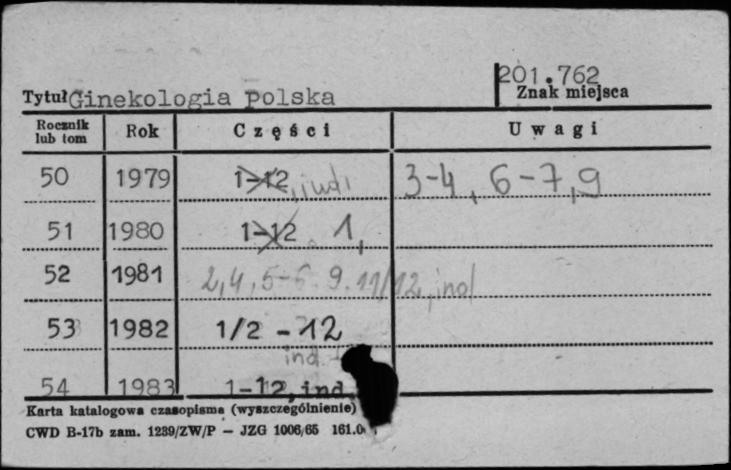 201.762
Tytuł Ginekologia Polska Znak miejsca
Rocznik lub tom Rok Części Uwagi
50 1979 1-12, ind. 3-4, 6-7, 9
51 1980 1-12 1,
52 1981 2, 4, 5-6. 9. 11/12, ind
53 1982 1/2 - 12
ind.
54 1983 1-12, ind.
Karta katalogowa czasopisma (wyszczególnienie)
CWD B-17b zam. 1239/ZW/P — JZG 1006/65 161.0